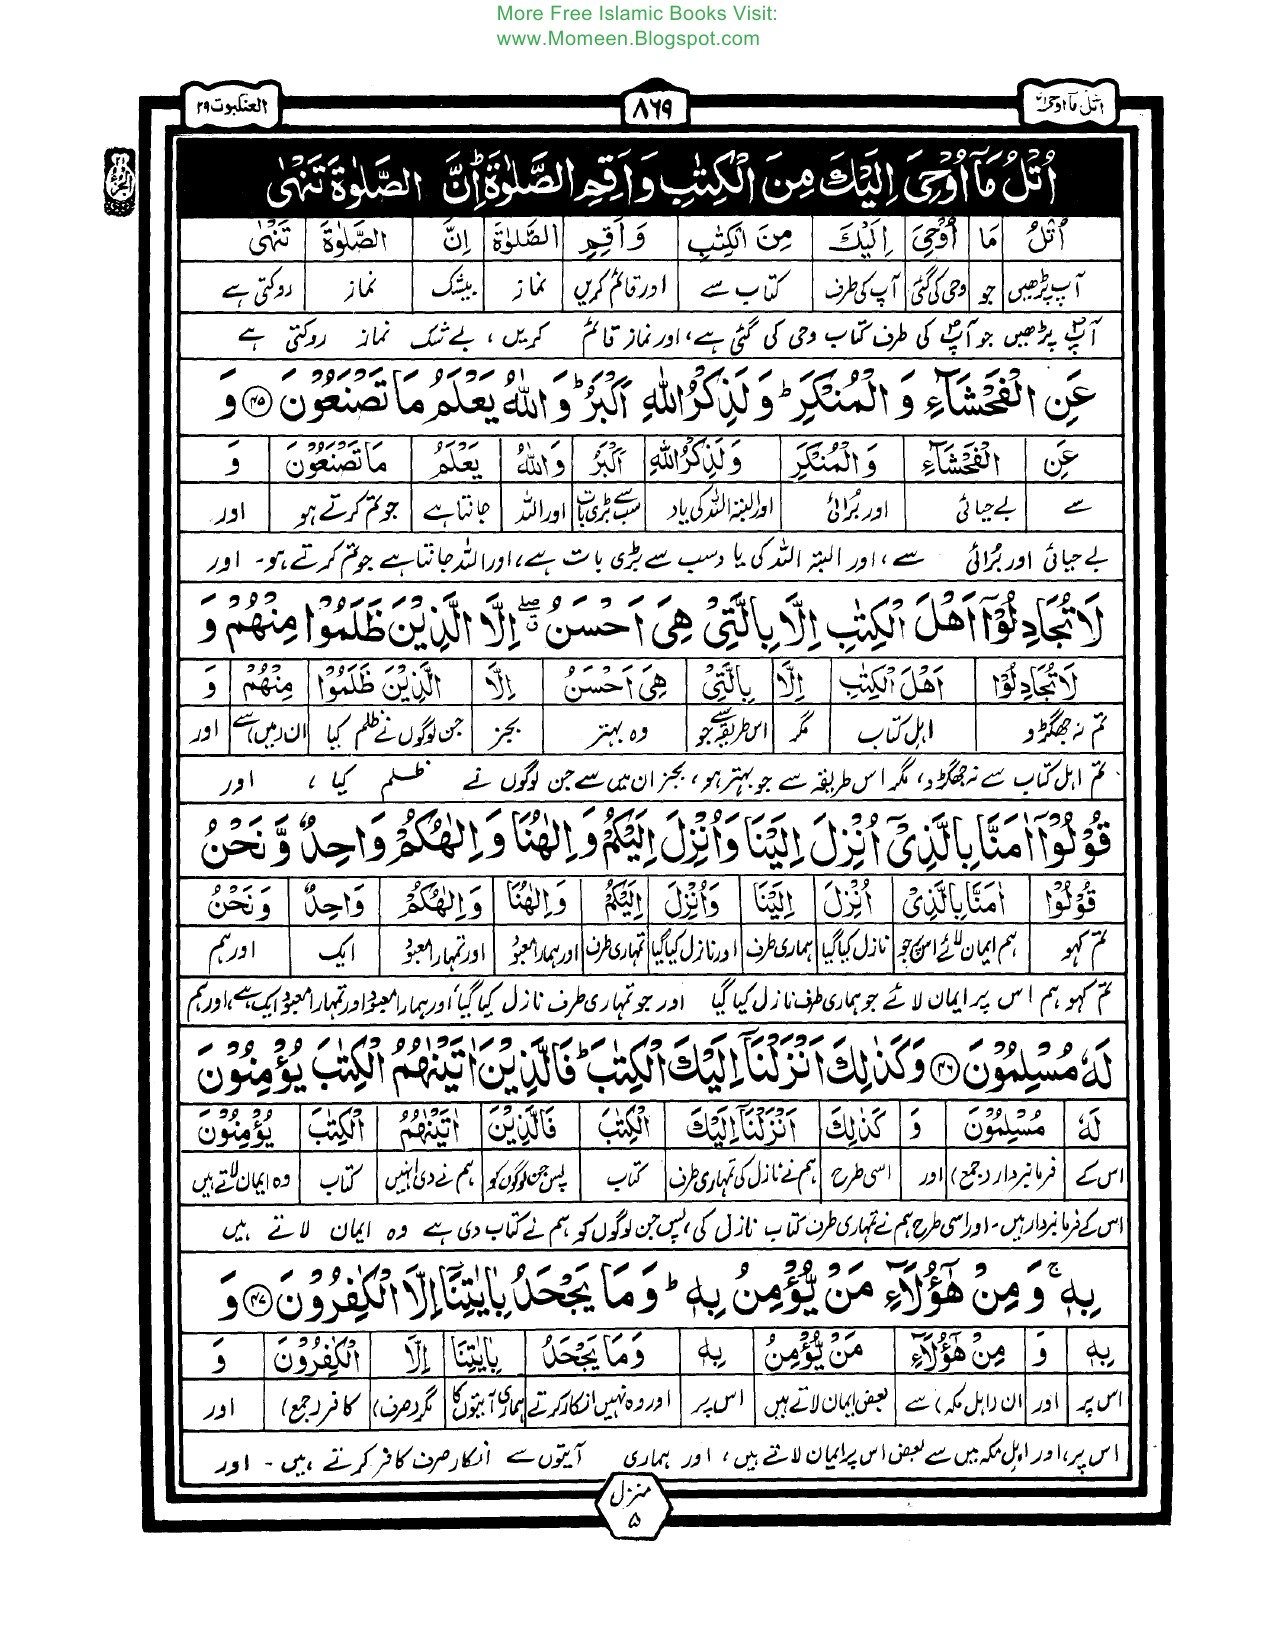 More Free Islamic Books Visit:
www.Momeen.Blogspot.com
اتل ما اوحی ۲۱
۸۶۹
العنکبوت ۲۹
اُتْلُ مَآ اُوْحِیَ اِلَیْكَ مِنَ الْکِتٰبِ وَ اَقِمِ الصَّلٰوةَ ؕ اِنَّ الصَّلٰوةَ تَنْهٰی
اُتْلُ مَا اُوْحِیَ اِلَیْكَ مِنَ الْکِتٰبِ وَ اَقِمِ الصَّلٰوةَ اِنَّ الصَّلٰوةَ تَنْهٰی
آپ پڑھیں جو وحی کی گئی آپ کی طرف کتاب سے اور قائم کریں نماز بیشک نماز روکتی ہے
آپؐ پڑھیں جو آپؐ کی طرف کتاب وحی کی گئی ہے، اور نماز قائم کریں، بے شک نماز روکتی ہے
عَنِ الْفَحْشَآءِ وَ الْمُنْکَرِ ؕ وَ لَذِکْرُ اللّٰهِ اَکْبَرُ ؕ وَ اللّٰهُ یَعْلَمُ مَا تَصْنَعُوْنَ ﴿۴۵﴾ وَ
عَنِ الْفَحْشَآءِ وَ الْمُنْکَرِ وَ لَذِکْرُ اللّٰهِ اَکْبَرُ وَ اللّٰهُ یَعْلَمُ مَا تَصْنَعُوْنَ وَ
سے بے حیائی اور برُائی اور البتہ اللہ کی یاد سب سے بڑی بات اور اللہ جانتا ہے جو تم کرتے ہو اور
بے حیائی اور برُائی سے، اور البتہ اللہ کی یاد سب سے بڑی بات ہے، اور اللہ جانتا ہے جو تم کرتے ہو۔ اور
لَا تُجَادِلُوْٓا اَهْلَ الْکِتٰبِ اِلَّا بِالَّتِیْ هِیَ اَحْسَنُ ۖ اِلَّا الَّذِیْنَ ظَلَمُوْا مِنْهُمْ وَ
لَا تُجَادِلُوْٓا اَهْلَ الْکِتٰبِ اِلَّا بِالَّتِیْ هِیَ اَحْسَنُ اِلَّا الَّذِیْنَ ظَلَمُوْا مِنْهُمْ وَ
تم نہ جھگڑو اہل کتاب مگر اس طریقہ سے جو وہ بہتر بجز جن لوگوں نے ظلم کیا ان (میں) سے اور
تم اہل کتاب سے نہ جھگڑو، مگر اس طریقہ سے جو بہتر ہو، بجز ان میں سے جن لوگوں نے ظلم کیا، اور
قُوْلُوْٓا اٰمَنَّا بِالَّذِیْٓ اُنْزِلَ اِلَیْنَا وَ اُنْزِلَ اِلَیْکُمْ وَ اِلٰهُنَا وَ اِلٰهُکُمْ وَاحِدٌ وَّ نَحْنُ
قُوْلُوْٓا اٰمَنَّا بِالَّذِیْٓ اُنْزِلَ اِلَیْنَا وَ اُنْزِلَ اِلَیْکُمْ وَ اِلٰهُنَا وَ اِلٰهُکُمْ وَاحِدٌ وَ نَحْنُ
تم کہو ہم ایمان لائے اس پر جو نازل کیا گیا ہماری طرف اور نازل کیا گیا تمہاری طرف اور ہمارا معبود اور تمہارا معبود ایک اور ہم
تم کہو ہم اس پر ایمان لائے جو ہماری طرف نازل کیا گیا اور جو تمہاری طرف نازل کیا گیا، اور ہمارا معبود اور تمہارا معبود ایک ہے، اور ہم
لَهٗ مُسْلِمُوْنَ ﴿۴۶﴾ وَ کَذٰلِكَ اَنْزَلْنَآ اِلَیْكَ الْکِتٰبَ ؕ فَالَّذِیْنَ اٰتَیْنٰهُمُ الْکِتٰبَ یُؤْمِنُوْنَ
لَهٗ مُسْلِمُوْنَ وَ کَذٰلِكَ اَنْزَلْنَآ اِلَیْكَ الْکِتٰبَ فَالَّذِیْنَ اٰتَیْنٰهُمُ الْکِتٰبَ یُؤْمِنُوْنَ
اس کے فرمانبردار (جمع) اور اسی طرح ہم نے نازل کی تمہاری طرف کتاب پس جن لوگوں کو ہم نے دی انہیں کتاب وہ ایمان لاتے ہیں
اس کے فرمانبردار ہیں۔ اور اسی طرح ہم نے تمہاری طرف کتاب نازل کی، پس جن لوگوں کو ہم نے کتاب دی ہے وہ ایمان لاتے ہیں
بِهٖ ۚ وَ مِنْ هٰۤؤُلَآءِ مَنْ یُّؤْمِنُ بِهٖ ؕ وَ مَا یَجْحَدُ بِاٰیٰتِنَآ اِلَّا الْکٰفِرُوْنَ ﴿۴۷﴾ وَ
بِهٖ وَ مِنْ هٰۤؤُلَآءِ مَنْ یُّؤْمِنُ بِهٖ وَ مَا یَجْحَدُ بِاٰیٰتِنَا اِلَّا الْکٰفِرُوْنَ وَ
اس پر اور ان (اہل مکہ) سے بعض ایمان لاتے ہیں اس پر اور وہ نہیں انکار کرتے ہماری آیتوں کا مگر (صرف) کافر (جمع) اور
اس پر، اور اہل مکہ میں سے بعض اس پر ایمان لاتے ہیں، اور ہماری آیتوں سے انکار صرف کافر کرتے ہیں۔ اور
منزل
۵